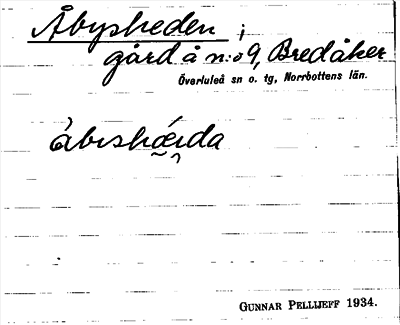 Åbysheden ;
gård å n:o 9, Bredåker
Överluleå sn o. tg, Norrbottens län.
GUNNAR PELLIJEFF 1934.